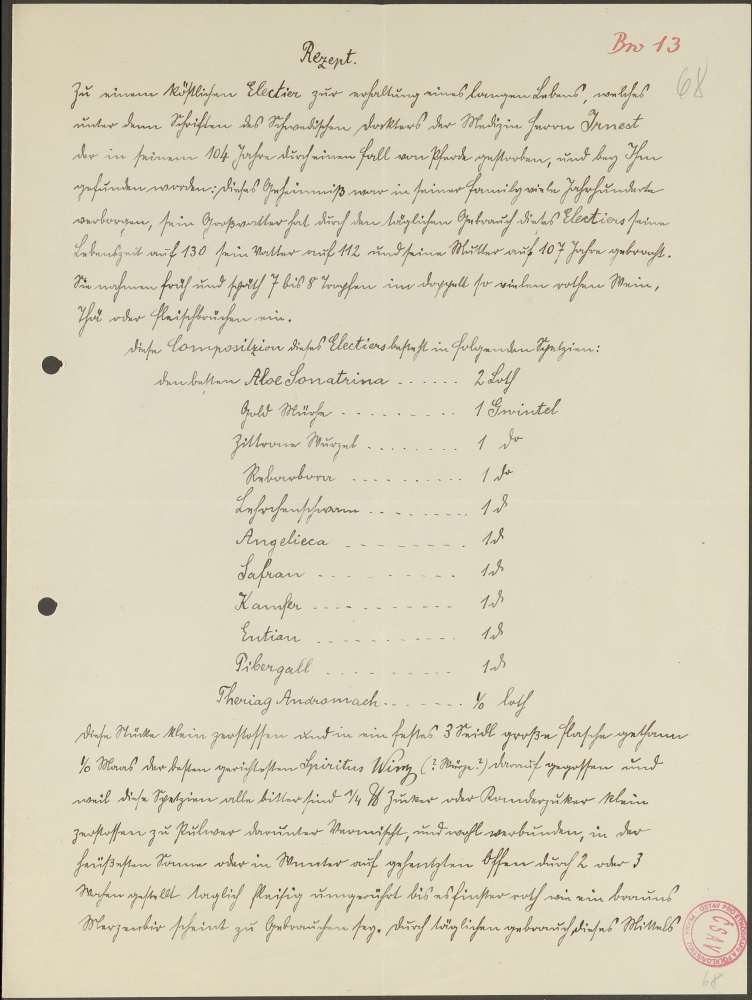 Rezept.
Bro 13
68
Zu einem köstlichen Electier zur erhaltung eines langen Lebens, welches
unter denn Schriften des Schwedischen Dockters der Medizin Herrn Irnest
der in seinem 104 Jahre durch einen fall vom Pferde gestorben, und bey Ihm
gefunden worden: dieses Geheimniß war in seiner family viele Jahrhunderte
verborgen, sein Großvatter hat durch den täglichen Gebrauch dieses Electiers seine
Lebenszeit auf 130 sein Vatter auf 112 und seine Mutter auf 107 Jahre gebracht.
Sie nahmen früh und späth 7 bis 8 Tropfen in doppelt so vielen rothen Wein,
Thä oder fleischbrüchen ein.
diese Composilzion dieses Electiers besteht in folgenden Spetzien:
den besten Aloe Sonatrina ...... 2 Loth
Gold Mürhe - - - - - - - - 1 Gwintel
Zittrone Wurzel ........ 1 do
Rebarbora .......... 1 do
Lehrchenschwam ........ 1 d
Angelieca - - - - - - - - 1 d
Safran - - - - - - - - - 1 d
Kamfer - - - - - - - - - 1 d
Entian - - - - - - - - - 1 d
Pibergall - - - - - - - - 1 d
Theriag Andromach....... loth
diese Stücke klein zerstossen und in ein festes 3 Seidl große flasche gethann
Maas der besten gerichtesten Spiritus Winy (? Würze?) darauf gegossen und
weil diese Spetzien alle bitter sind 1/4 ℔ Zucker oder Kanderzuker klein
zerstossen zu Pulwer darunter Vermischt, und wohl verbunden, in der
heüßesten Sonne oder in Wünter auf geheitzten Offen durch 2 oder 3
Wochen gestellt taglich fleißig umgerührt bis es finster roth wie ein brauns
Merzenbir scheint zu Gebrauchen sey. durch täglichen gebrauch dieses Mittels
ČSAV
68